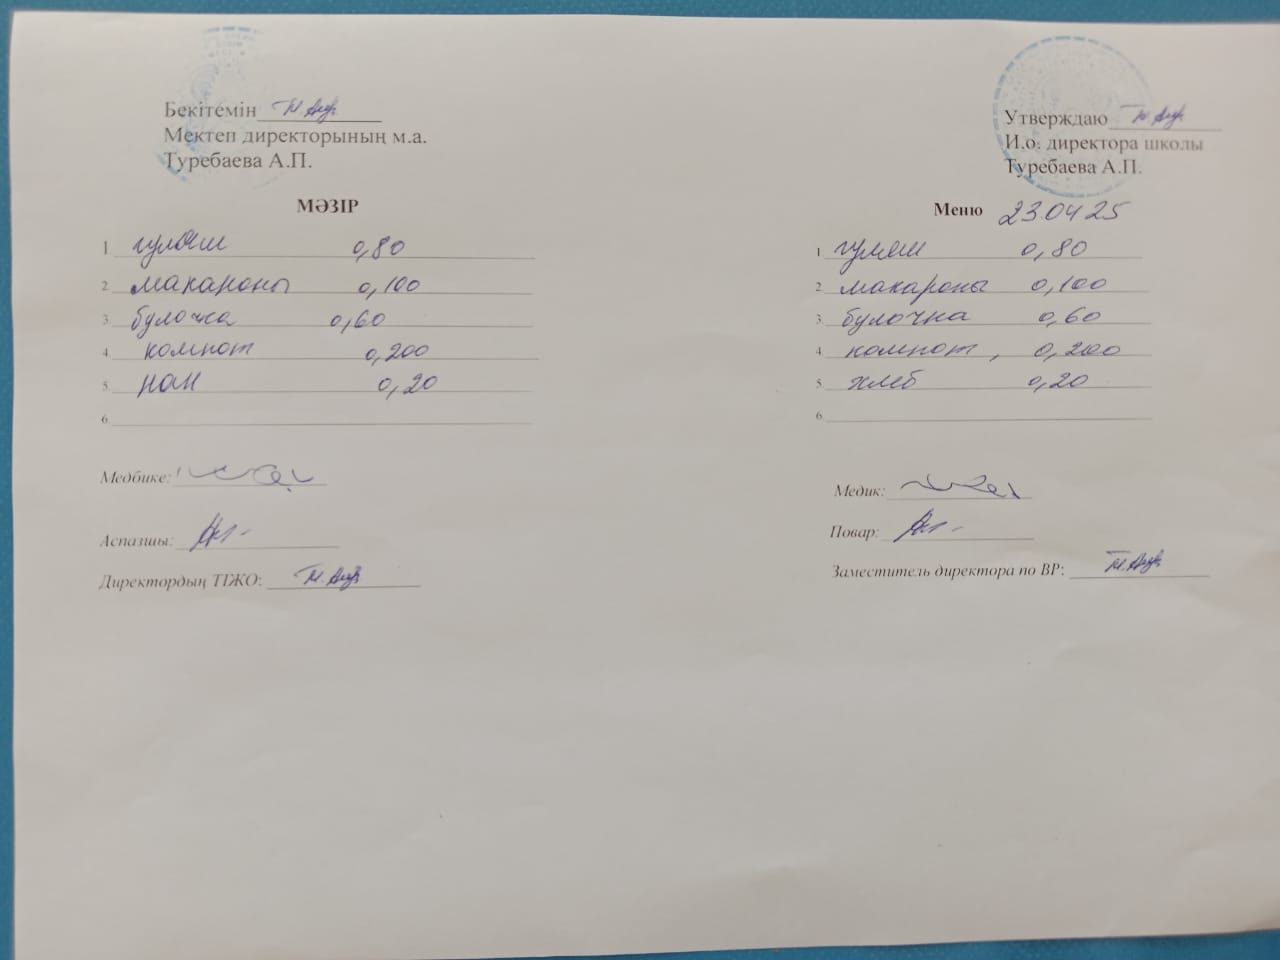 Бекітемін
Мектеп директорының м.а.
Туребаева А.П.
МӘЗІР
1 гуляш 0,80
2. макароны 0,100
3. булочка 0,60
4. компот 0,200
5. нан 0,20
6.
Медбике:
Аспазшы:
Директордың ТІЖО:
Утверждаю
И.о. директора школы
Туребаева А.П.
Меню 230425
1 гуляш 0,80
2 макароны 0,100
3. булочка 0,60
4. компот, 0,200
5. хлеб 0,20
6.
Медик:
Повар:
Заместитель директора по ВР: